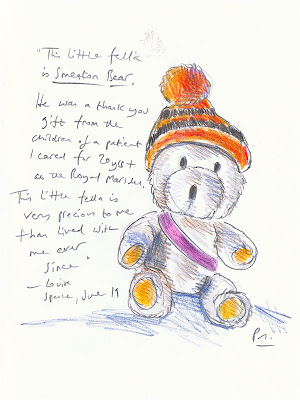 "This little fella
is Smeaton Bear.
He was a thank you
gift from the
children of a patient
I cared for 20 yrs+
at the Royal Marsden.
This little fella is
very precious to me
+ has lived with
me ever
since"
— Louise
June 19